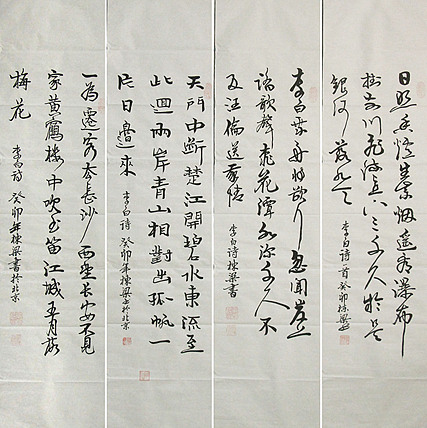 日照香炉生紫烟遥看瀑布
挂前川飛流直下三千尺疑是
銀河落九天
李白诗一首癸卯栋梁书
李白乘舟将欲行忽闻岸上
踏歌聲桃花潭水深千尺不
及汪倫送我情
李白诗栋梁書
天門中斷楚江開碧水東流至
此迴兩岸青山相對出孤帆一
片日邊來
李白詩癸卯年栋梁书於北京
一為遷客去長沙西望長安不見
家黄鶴樓中吹玉笛江城五月落
梅花
李白詩癸卯年棟梁書於北京